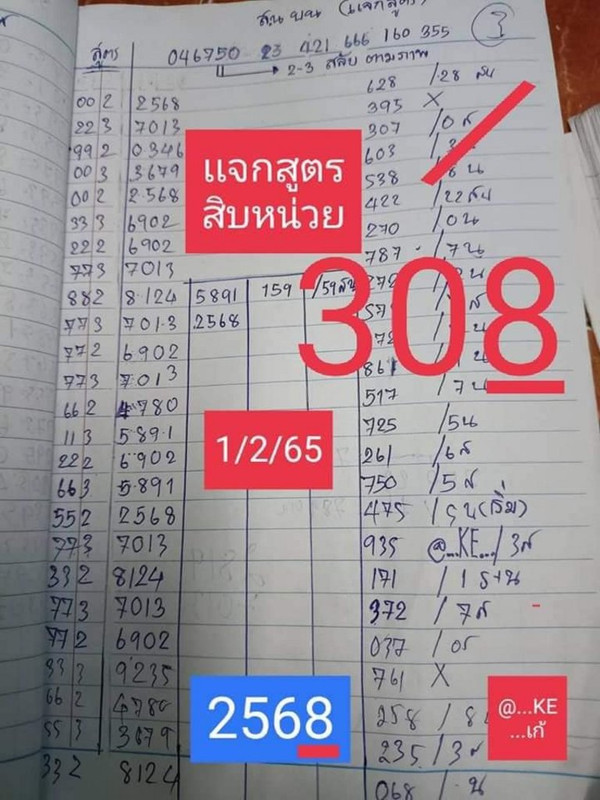 สน บน (แจกสูตร)
3
สูตร 046750 23 421 666 160 355
2-3 สลับ ตามภาพ
628 /28 สน
002 2568 395 X
223 7013 307 /0ส
992 0346 603
003 3679 538 น
002 2568 422 /22สน
333 6902 270 /0น
222 6902 787 /7น
773 7013
882 8124 5891 159 /59สน
773 7013 2568
772 6902
773 7013 861
662 4780 517 /7น
113 5891 725 /5น
222 6902 261 /6ส
663 5891 750 /5ส
552 2568 475
773 7013 935 @...KE.../3ส
332 8124 171
773 7013 372 /7ส
772 6902 037
333 9235 761 X
662 4780 258 /8
553 3679 235 /3ส
332 8124 068 / น
แจกสูตร
สิบหน่วย
308
1/2/65
2568
@...KE
...เก้